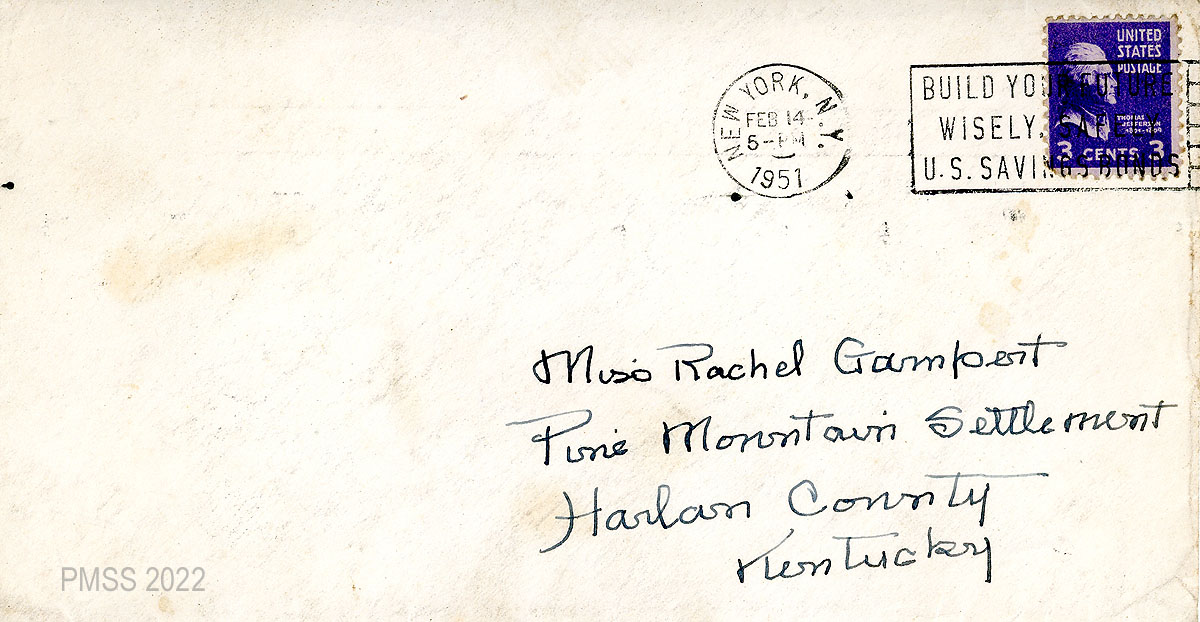 NEW YORK, N.Y.
FEB 14
5-PM
1951
BUILD YOUR FUTURE
WISELY, SAFELY
U.S. SAVINGS BONDS
UNITED
STATES
POSTAGE
THOMAS
JEFFERSON
1801-1809
3 CENTS 3
Miss Rachel Gampert
Pine Mountain Settlement
Harlan County
Kentucky
PMSS 2022